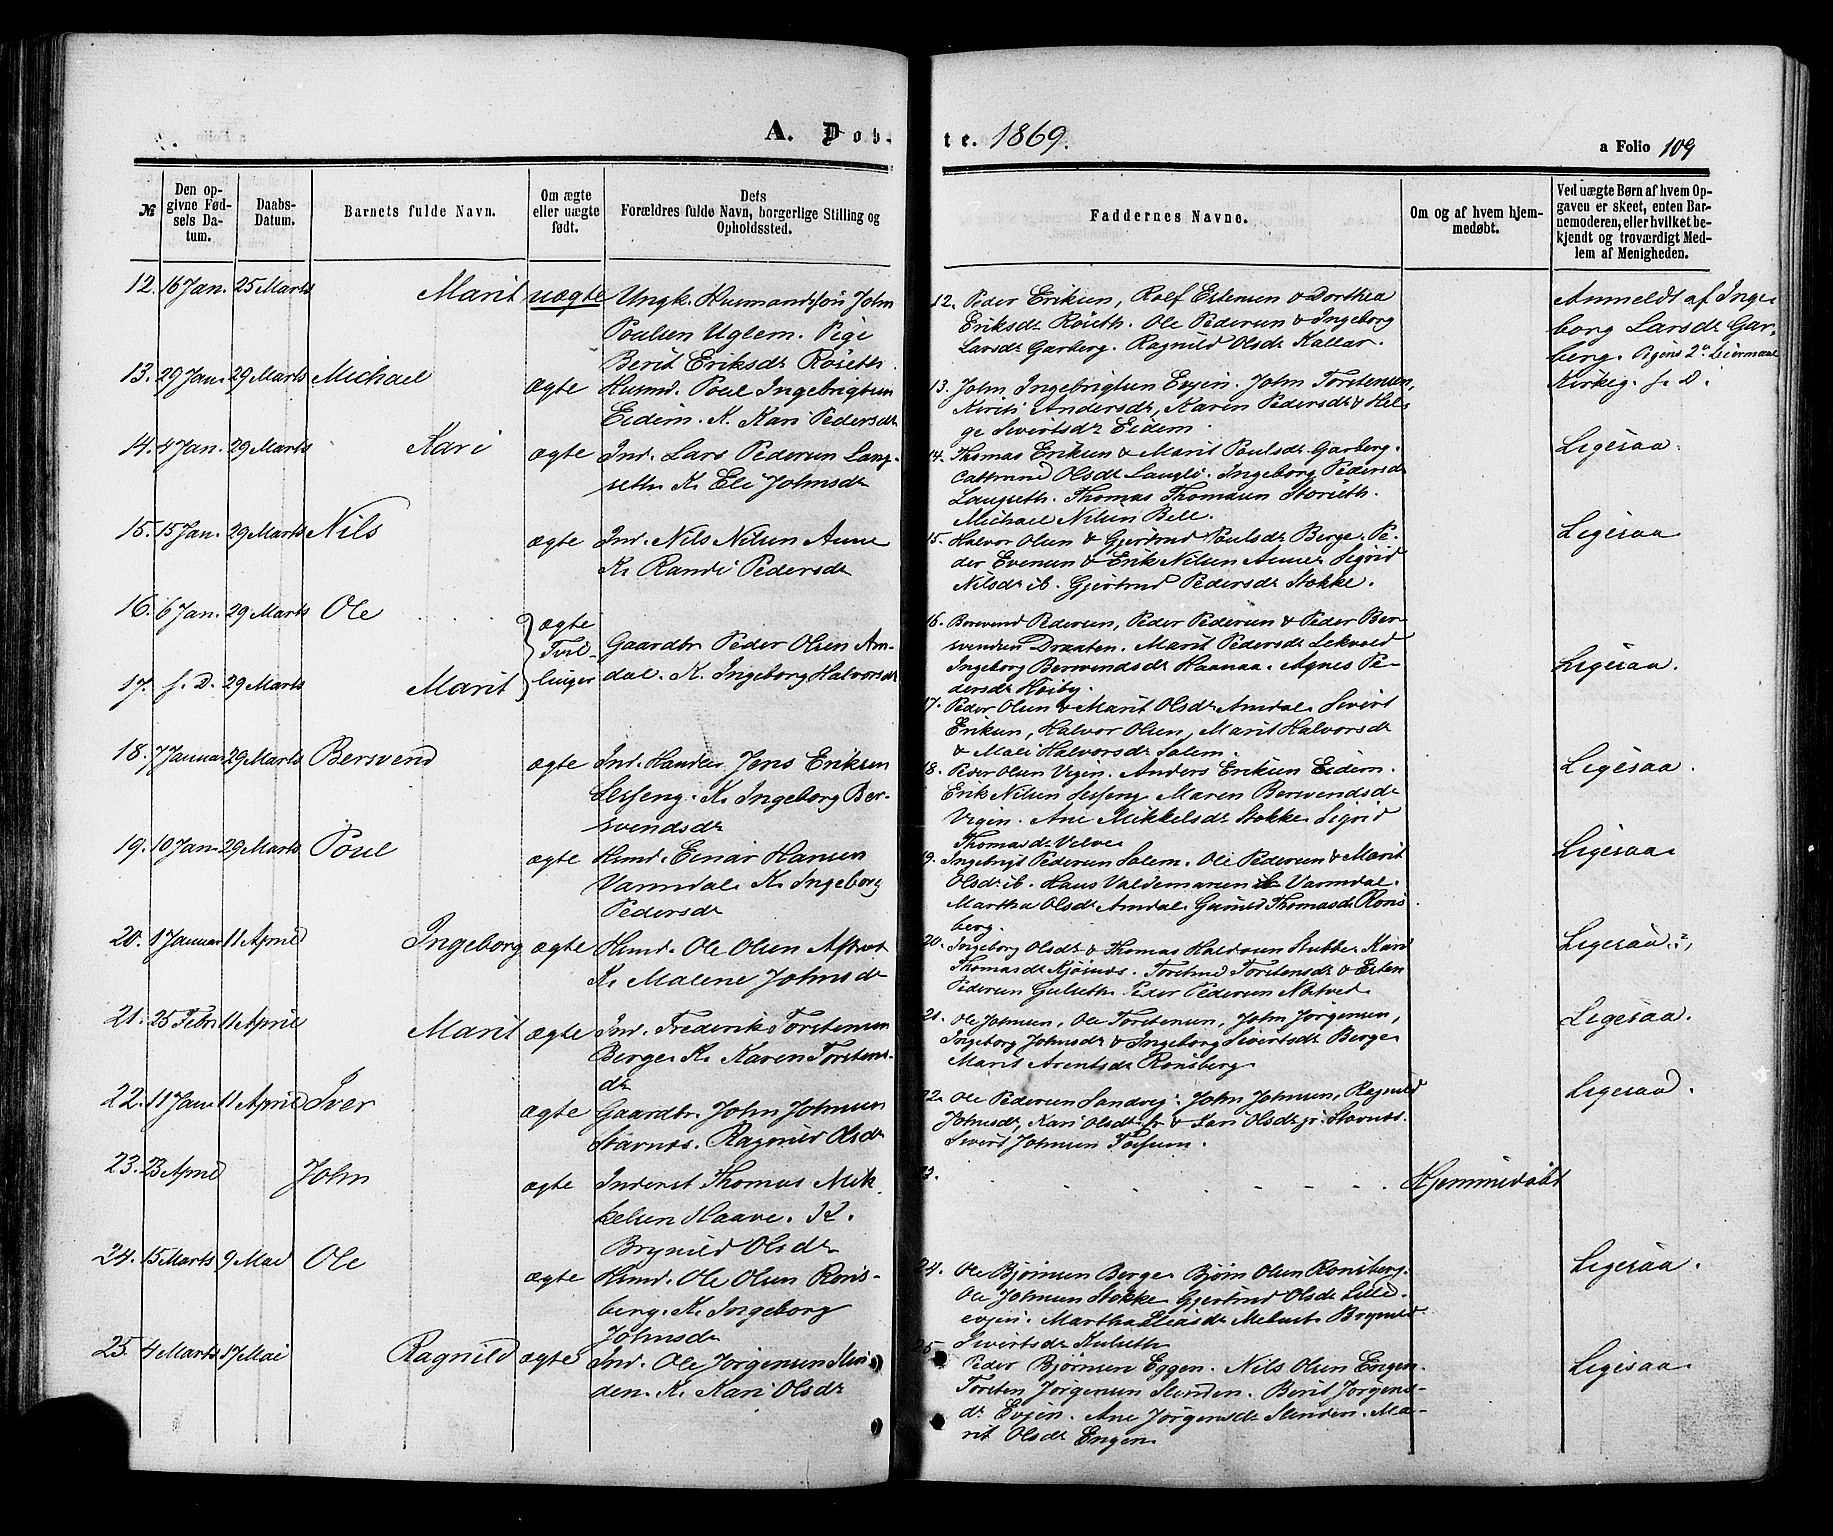 A. Døb-
te. 1869.
a Folio 109
№
Den op-
givne Fød-
sels Da-
tum.
Daabs-
Datum.
Barnets fulde Navn.
Om ægte
eller uægte
født.
Dets
Forældres fulde Navn, borgerlige Stilling og
Opholdssted.
Faddernes Navne.
Om og af hvem hjem-
medøbt.
Ved uægte Børn af hvem Op-
gaven er skeet, enten Bar-
nemoderen, eller hvilket be-
kjendt og troværdigt Med-
lem af Menigheden.
12. 16 Jan. 25 Marts Marit uægte Ungk. Husmandssøn John
Poulsen Uglem. Pige
Berit Eriksdr Røseth.
12. Peder Eriksen, Rolf Estensen & Dorthea
Eriksdr Røseth. Ole Pedersen & Ingeborg
Larsdr Garberg. Ragnild Olsdr Kallar.
Anmeldt af Inge-
borg Larsdr Gar-
berg. Pigens 2. Leiermaal
13. 29 Jan. 29 Marts Michael ægte Husmd. Poul Ingebrigtsen
Eidem. K. Kari Pedersdr
13. John Ingebrigtsen Evjen. John Torstensen,
Kirsti Andersdr, Karen Pedersdr & Hel-
ge Sivertsdr Eidem.
Kirkeg. s. D.
14. 4 Jan. 29 Marts Kari ægte Ind. Lars Pedersen Lang-
seth. K. Eli Johnsdr
14. Thomas Eriksen & Marit Paulsdr Garberg.
Cathrine Olsdr Langli. Ingeborg Pedersdr
Langseth. Thomas Thomasen Storseth.
Michael Nilsen Bell.
Ligesaa.
15. 15 Jan. 29 Marts Nils ægte Ind. Nils Nilsen Aune
K. Randi Pedersdr
15. Halvor Olsen & Gjertrud Poulsdr Berge. Pe-
der Evensen & Erik Nilsen Aune. Sigrid
Nilsdr ib. Gjertrud Pedersdr Stokke.
Ligesaa
16. 6 Jan. 29 Marts Ole
ægte
Tvil-
linger
Gaardbr. Peder Olsen Am-
dal. K. Ingeborg Halvorsdr
16. Bersvend Pedersen, Peder Pedersen & Peder Ber-
svendsen Draxten. Marit Pedersdr Lekvold
Ingeborg Bersvendsdr Haanaa. Agnes Pe-
dersdr Høiby.
Ligesaa.
17. s. D. 29 Marts Marit
17. Peder Olsen & Marit Olsdr Amdal. Sivert
Eriksen, Halvor Olsen, Marit Halvorsdr
& Mali Halvorsdr Salem.
18. 7 Januar 29 Marts Bersvend ægte Ind. Handler Jens Eriksen
Selseng. K. Ingeborg Ber-
svendsdr
18. Peder Olsen Vigen. Anders Eriksen Eidem.
Erik Nilsen Selseng. Maren Bersvendsdr
Vigen. Ane Mikkelsdr Stokke. Sigrid
Thomasdr Velve
Ligesaa.
19. 10 Jan. 29 Marts Poul ægte Husmd. Einar Hansen
Varmdal. K. Ingeborg
Pedersdr
19. Ingebrigt Pedersen Salem. Ole Pedersen & Marit
Olsdr ib. Hans Valdemarsen Varmdal.
Martha Olsdr Amdal. Gunild Thomasdr Røns-
berg.
Ligesaa
20. 1 Januar 11 April Ingeborg ægte Husmd. Ole Olsen Aftret
K. Malene Johnsdr
20. Ingeborg Olsdr & Thomas Haldosen Stubbe. Kari
Thomasdr Kjøsnæs. Torstine Torstensdr & Esten
Pedersen Gulseth. Peder Pedersen Nøtved.
Ligesaa
21. 25 Febr. 11 April Marit ægte Ind. Frederik Torstensen
Berge K. Karen Torstens-
dr
21. Ole Johnsen, Ole Torstensen, John Jørgensen,
Ingeborg Johnsdr & Ingeborg Sivertsdr Berge
Marit Arentsdr Rønsberg.
Ligesaa.
22. 11 Jan. 11 April Iver ægte Gaardbr. John Johnsen
Stavnæs. Ragnild Olsdr
22. Ole Pedersen Sandvig. John Johnsen, Ragnild
Johnsdr, Kari Olsdr sr & Kari Olsdr jr Stavnæs.
Sivert Johnsen Tofsum.
Ligesaa.
23. 23 April John ægte Inderst Thomas Mik-
kelsen Haave. K.
Brynild Olsdr
23.
Hjemmedøbt
24. 15 Marts 9 Mai Ole ægte Husmd. Ole Olsen Røns-
berg. K. Ingeborg
Johnsdr
24. Ole Bjørnsen Berge. Bjørn Olsen Rønsberg.
Ole Johnsen Stokke Gjertrud Olsdr Lille-
evjen. Martha Eliasdr Melset. Brynild
Sivertsdr Kulseth
Ligesaa.
25. 4 Marts 17 Mai Ragnild ægte Ind. Ole Jørgensen Slin-
den. K. Kari Olsdr
25. Peder Bjørnsen Eggen. Nils Olsen Engen
Torsten Jørgensen Slinden. Berit Jørgens-
dr Evjen. Ane Jørgensdr Slinden. Ma-
rit Olsdr Engen.
Ligesaa.